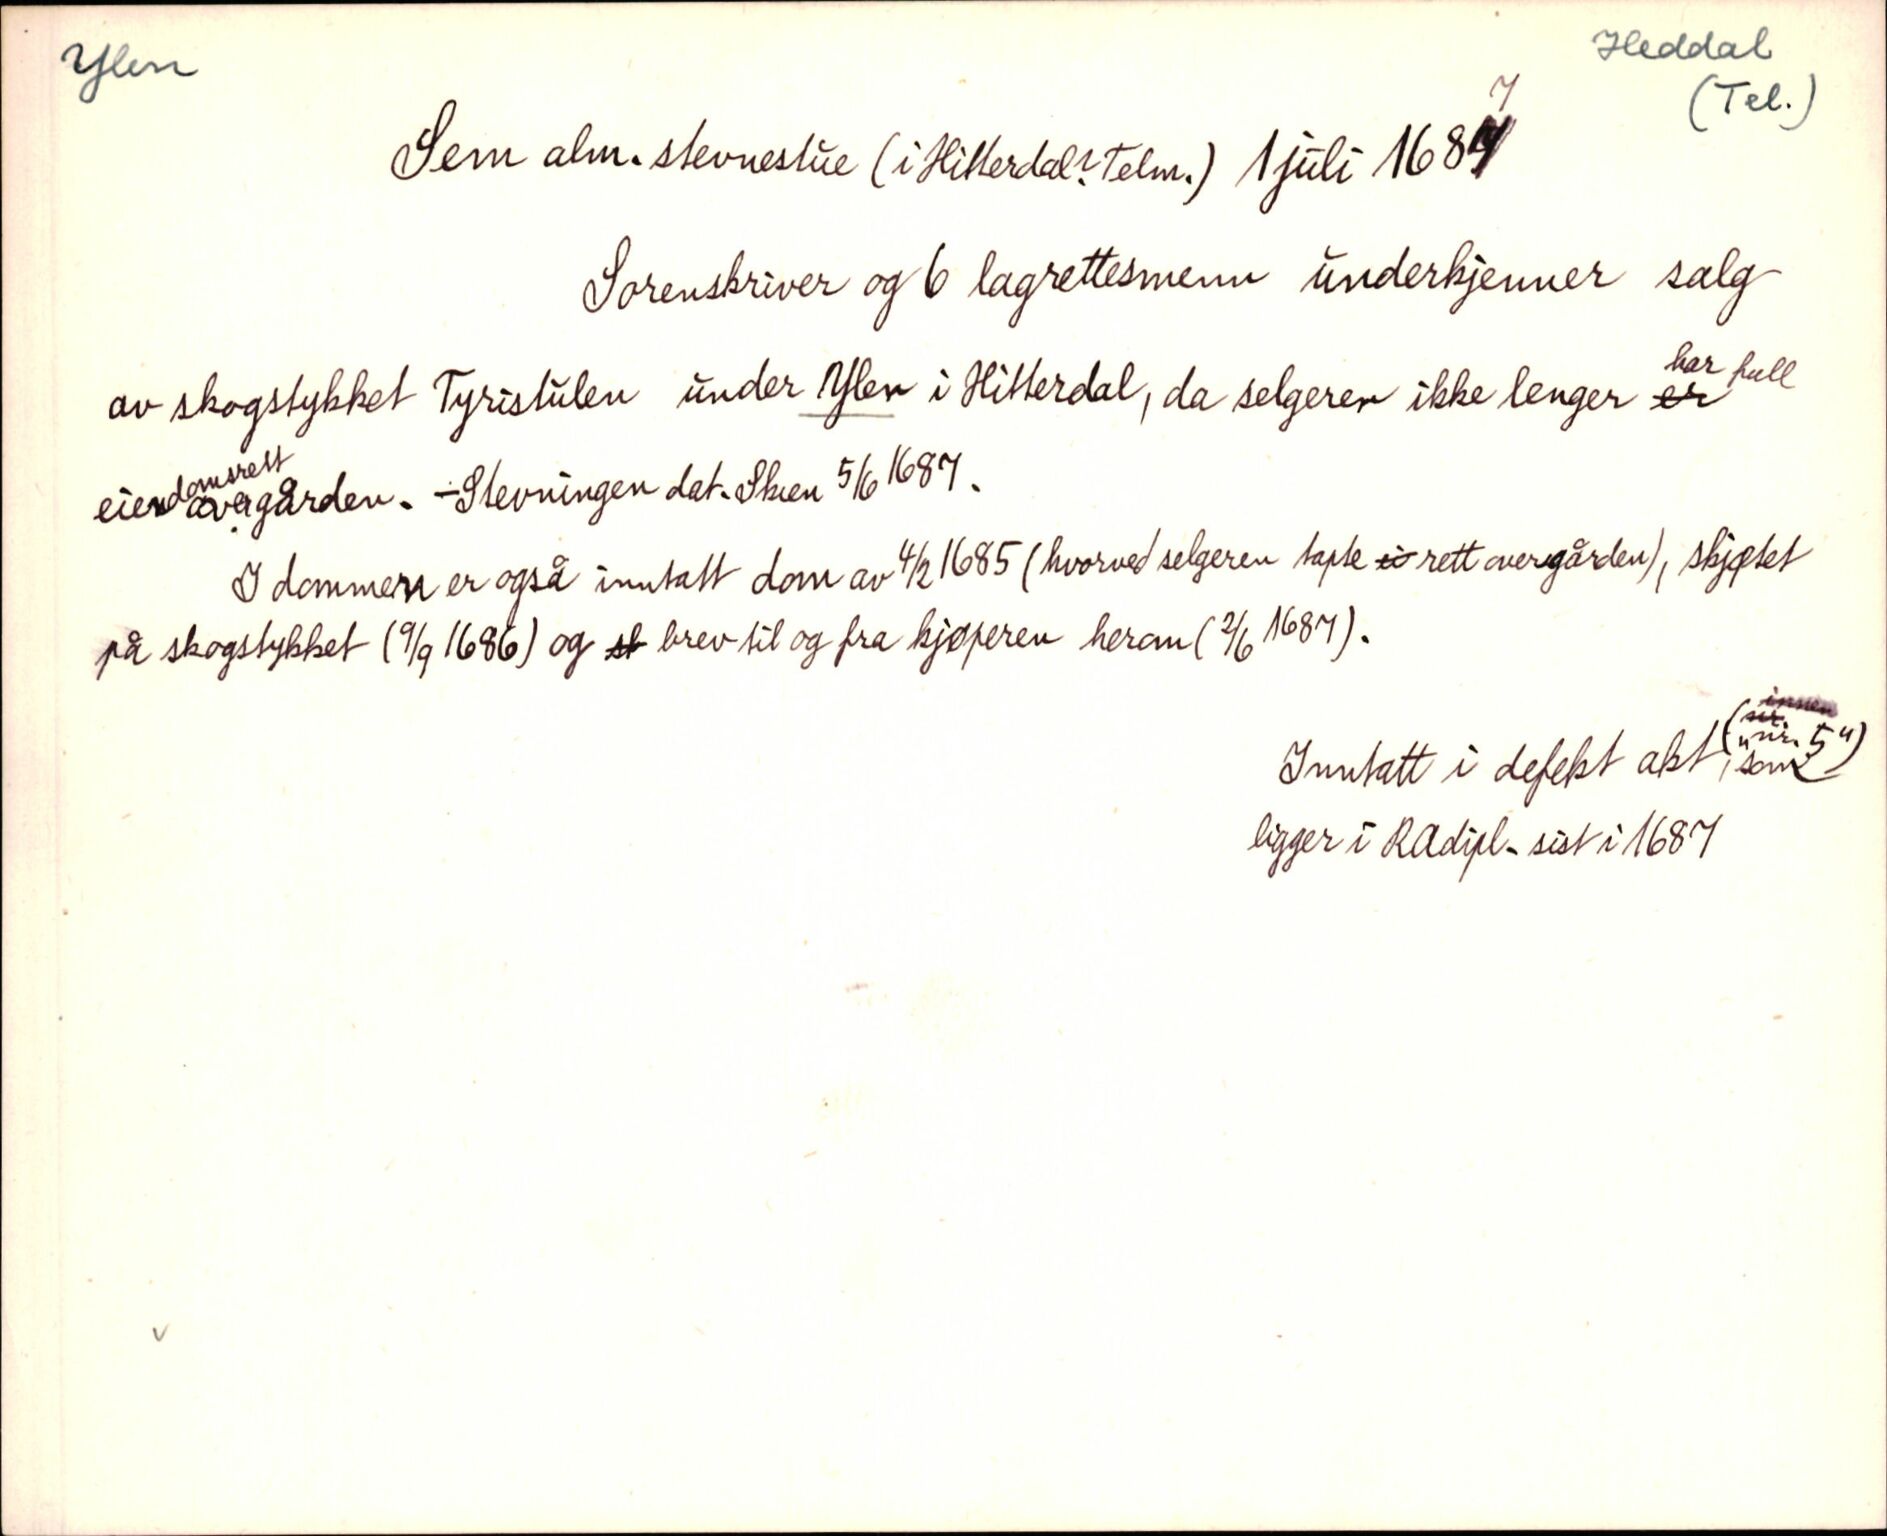 Ylen
Heddal
(Tel.)
Sem alm. stevnestue (i Hitterdal? Telm.) 1 juli 1687
Sorenskriver og 6 lagrettesmenn underkjenner salg
av skogstykket Tyristulen under Ylen i Hitterdal, da selgeren ikke lenger er har full
eiendomsrett over gården. - Stevningen dat. Skien 5/6 1687.
I dommen er også inntatt dom av 4/2 1685 (hvorved selgeren tapte ei rett over gården), skjøtet
på skogstykket (9/9 1686) og sk brev til og fra kjøperen herom (2/6 1687).
Inntatt i defekt akt ("nr. 5"), som
ligger i RAdipl. sist i 1687